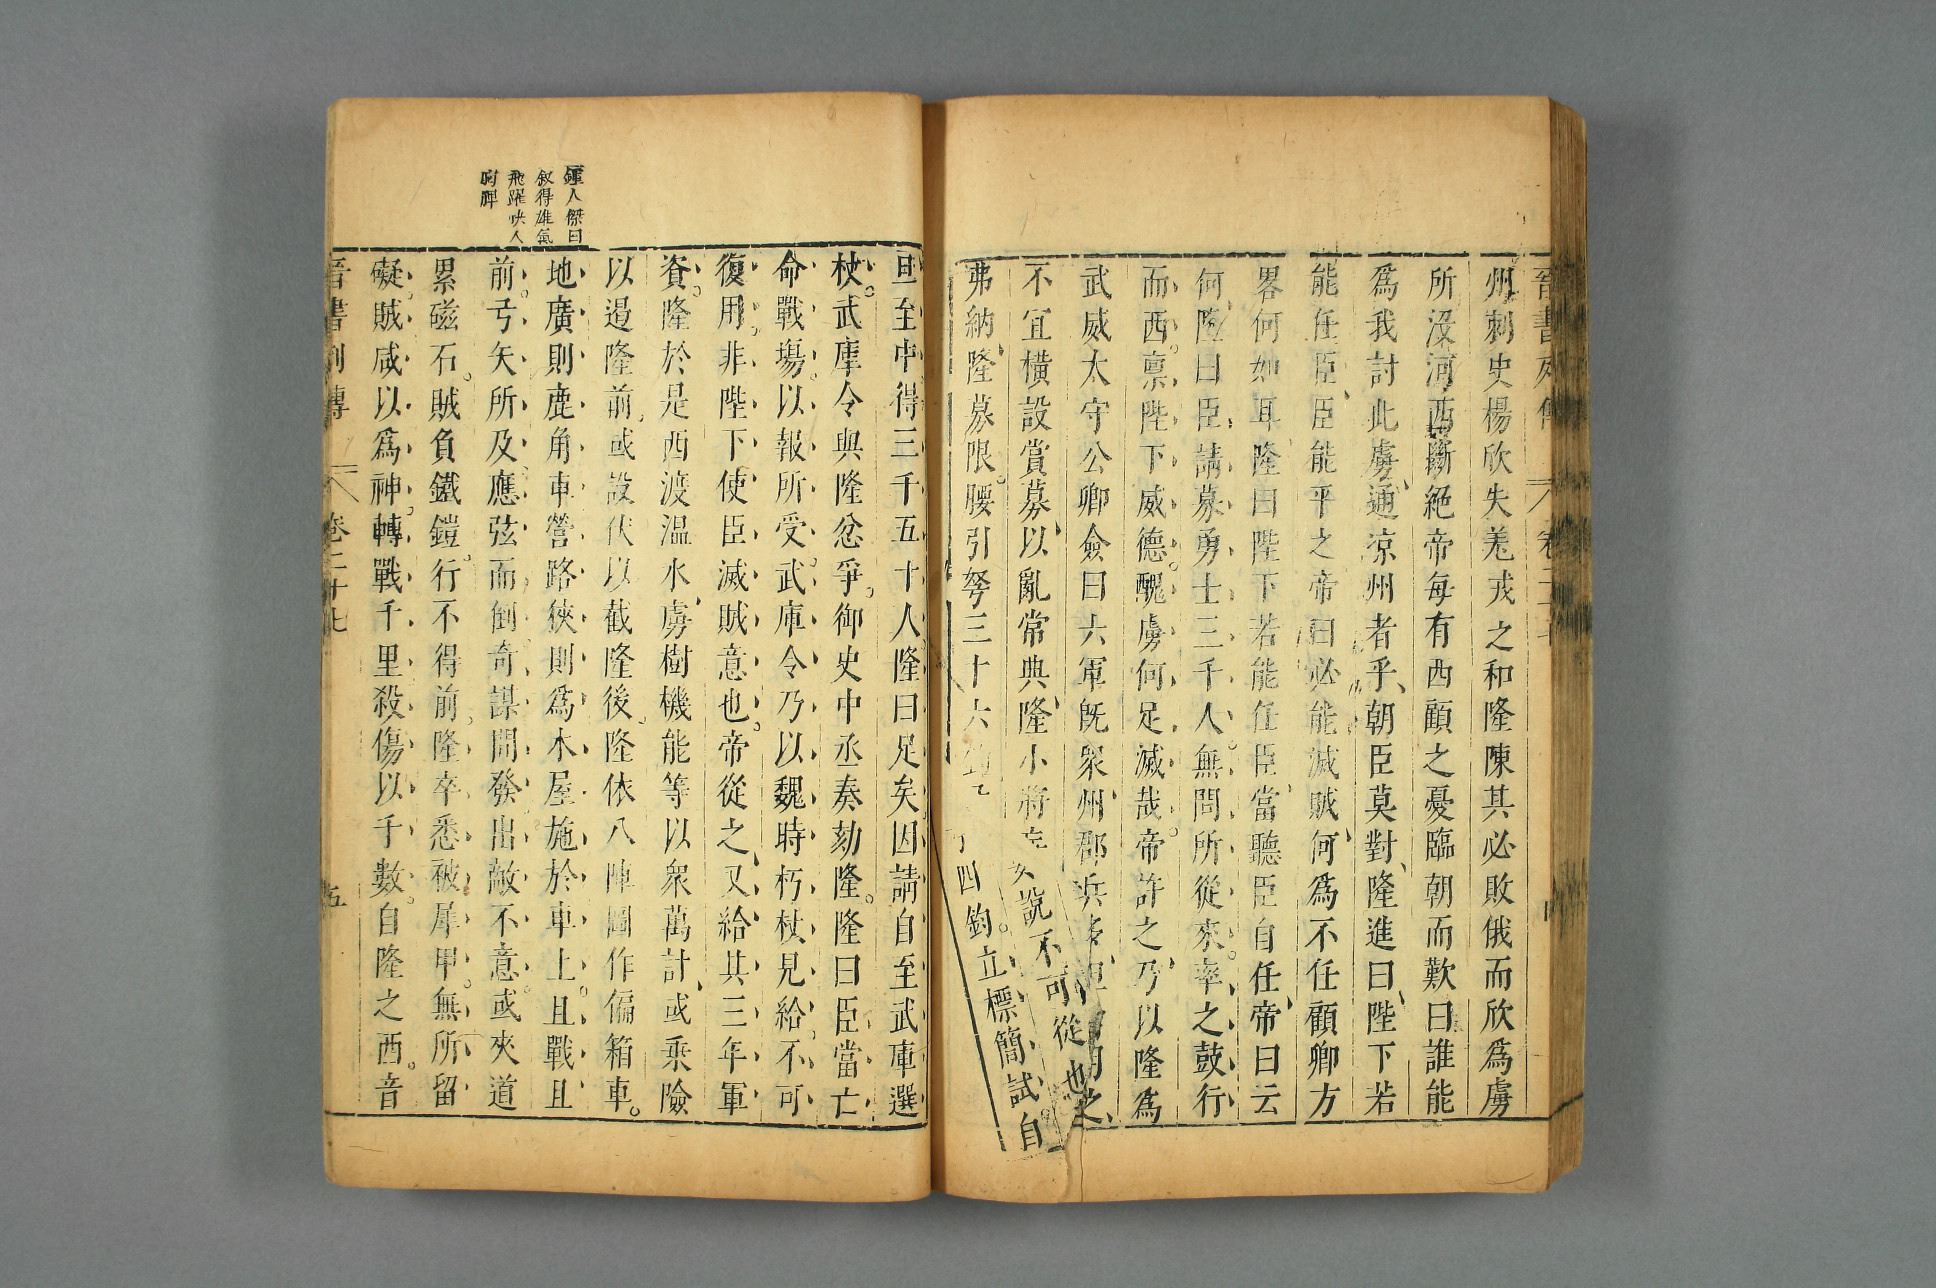 晉書列傳 卷二十七 四
州刺史楊欣失羌戎之和隆陳其必敗俄而欣爲虜
所沒河西斷絕帝每有西顧之憂臨朝而歎曰誰能
爲我討此虜通涼州者乎朝臣莫對隆進曰陛下若
能任臣臣能平之帝曰必能滅賊何爲不任顧卿方
畧何如耳隆曰陛下若能任臣當聽臣自任帝曰云
何隆曰臣請募勇士三千人無問所從來率之鼓行
而西禀陛下威德醜虜何足滅哉帝許之乃以隆爲
武威太守公卿僉曰六軍旣衆州郡兵多但用之
不宜橫設賞募以亂常典隆小將妄說不可從也帝
弗納隆募限腰引弩三十六鈞弓四鈞立標簡試自
旦至中得三千五十人隆曰足矣因請自至武庫選
杖武庫令與隆忿爭御史中丞奏劾隆隆曰臣當亡
命戰場以報所受武庫令乃以魏時朽杖見給不可
復用非陛下使臣滅賊意也帝從之又給其三年軍
資隆於是西渡温水虜樹機能等以衆萬計或乘險
以遏隆前或設伏以截隆後隆依八陣圖作偏箱車
地廣則鹿角車營路狹則爲木屋施於車上且戰且
前弓矢所及應弦而倒奇謀間發出敵不意或夾道
累磁石賊負鐵鎧行不得前隆卒悉被犀甲無所留
礙賊咸以爲神轉戰千里殺傷以千數自隆之西音
鍾人傑曰
叙得雄氣
飛躍快人
胸脾
晉書列傳 卷二十七 五